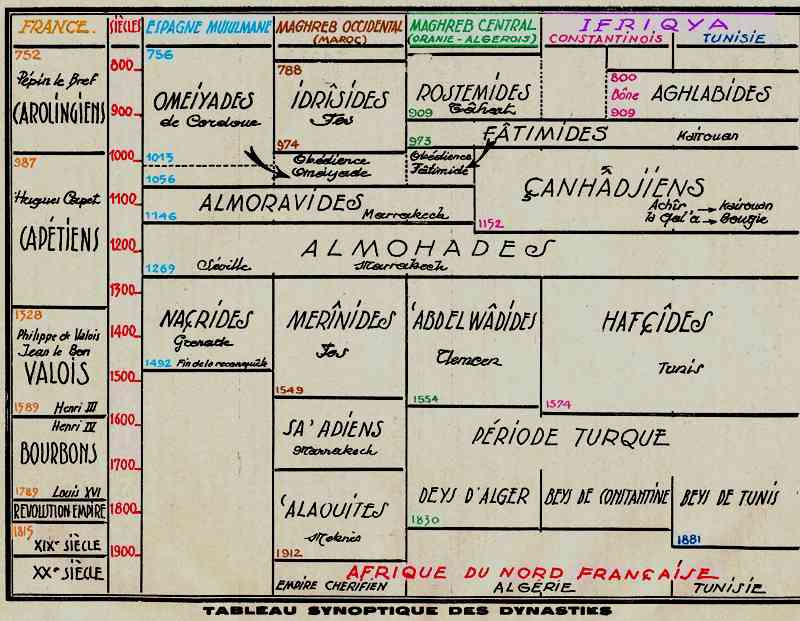 FRANCE.
SIÈCLES
ESPAGNE MUSULMANE
MAGHREB OCCIDENTAL
(MAROC)
MAGHREB CENTRAL
(ORANIE-ALGEROIS)
IFRIQYA
CONSTANTINOIS
TUNISIE
752
Pépin le Bref
CAROLINGIENS
987
Hugues Capet
CAPÉTIENS
1328
Philippe de Valois
Jean le Bon
VALOIS
1589 Henri III
Henri IV
BOURBONS
1789 Louis XVI
REVOLUTION EMPIRE
1815
XIXe SIÈCLE
XXe SIÈCLE
800
900
1000
1100
1200
1300
1400
1500
1600
1700
1800
1900
756
OMEIYADES
de Cordoue
1013
1056
788
IDRÎSIDES
Fes
974
Obédience
Omeiyade
ROSTEMIDES
909 Tâhert
973
Obédience
Fâtimide
800
Bône
909
AGHLABIDES
FÂTIMIDES
Kairouan
ÇANHÂDJIENS
Achîr → Kairouan
la Qal'a → Bougie
1152
ALMORAVIDES
Marrakech
1146
ALMOHADES
1269
Séville
Marrakech
NAÇRIDES
Grenade
1492 Fin de la reconquête
MERÎNIDES
Fes
1549
'ABDEL WÂDIDES
Tlemcen
1554
HAFÇÎDES
Tunis
1574
SA'ADIENS
Marrakech
PÉRIODE TURQUE
'ALAOUITES
Meknès
1912
DEYS D'ALGER
1830
BEYS DE CONSTANTINE
BEYS DE TUNIS
1881
AFRIQUE DU NORD FRANÇAISE
EMPIRE CHERIFIEN
ALGÉRIE
TUNISIE
TABLEAU SYNOPTIQUE DES DYNASTIES